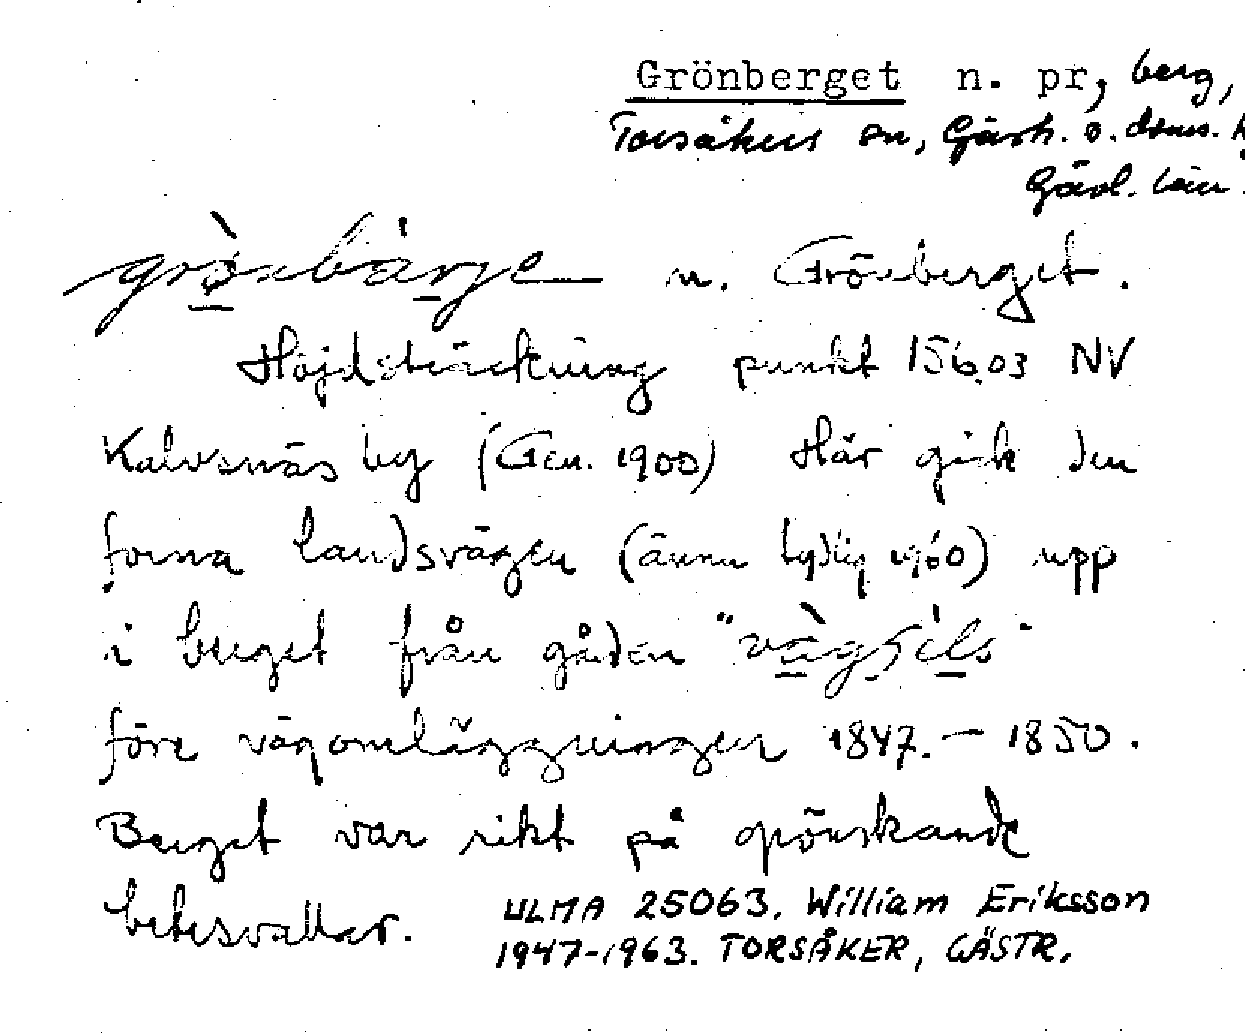 Grönberget n. pr, berg,
Torsåkers sn, Gästr. o. doms. h
Gävl. län.
grö̀nbär̀je n. Grönberget.
Höjdsträckning punkt 156.03 NV
Kalvsnäs by (Gen. 1900) Här gick den
forna landsvägen (ännu tydlig 1960) upp
i berget från gården "
före vägomläggningen 1847.–1850.
Berget var rikt på grönskande
betesvallar.
ULMA 25063. William Eriksson
1947-1963. TORSÅKER, GÄSTR.